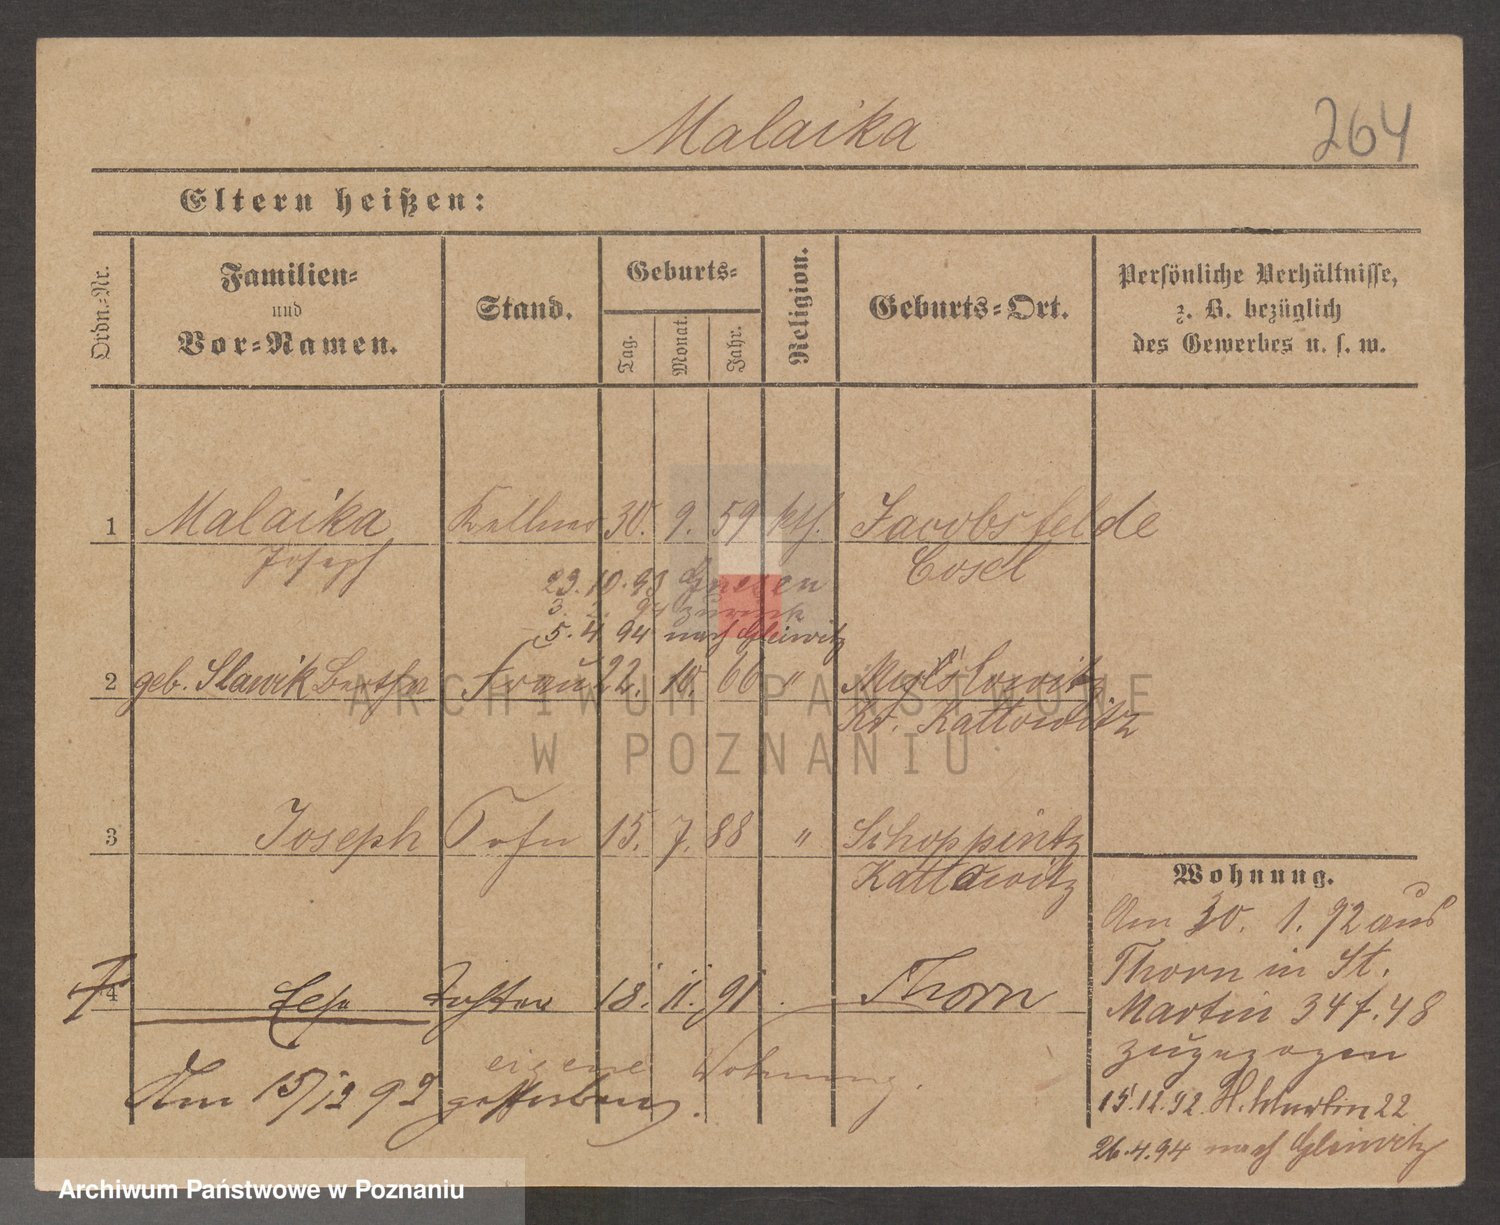 Malaika
264
Eltern heißen:
Ordn.-Nr.
Familien-
und
Vor-Namen.
Stand.
Geburts-
Tag.
Monat.
Jahr.
Religion.
Geburts-Ort.
Persönliche Verhältnisse,
z. B. bezüglich
des Gewerbes u. s. w.
1 Malaika Kellner 30. 9. 59 kth. Jacobsfelde
Joseph Cosel
23.10.93 Gnesen
3. 94 zurück
5.4 94 nach Gleiwitz
2 geb. Slawik Bertha Frau 22. 10. 66 " Myslowitz
Kr. Kattowitz
3 Joseph Sohn 15. 7. 88 " Schoppinitz
Kattowitz
4 Tochter 18. 11. 91 Thorn
eigene Wohnung.
Am 15/12 92 gestorben.
Wohnung.
Am 30. 1. 92 aus
Thorn in St.
Martin 34 f. 48
zugezogen
15.12.92 St. Martin 22
26.4.94 nach Gleiwitz
ARCHIWUM PAŃSTWOWE
W POZNANIU
Archiwum Państwowe w Poznaniu